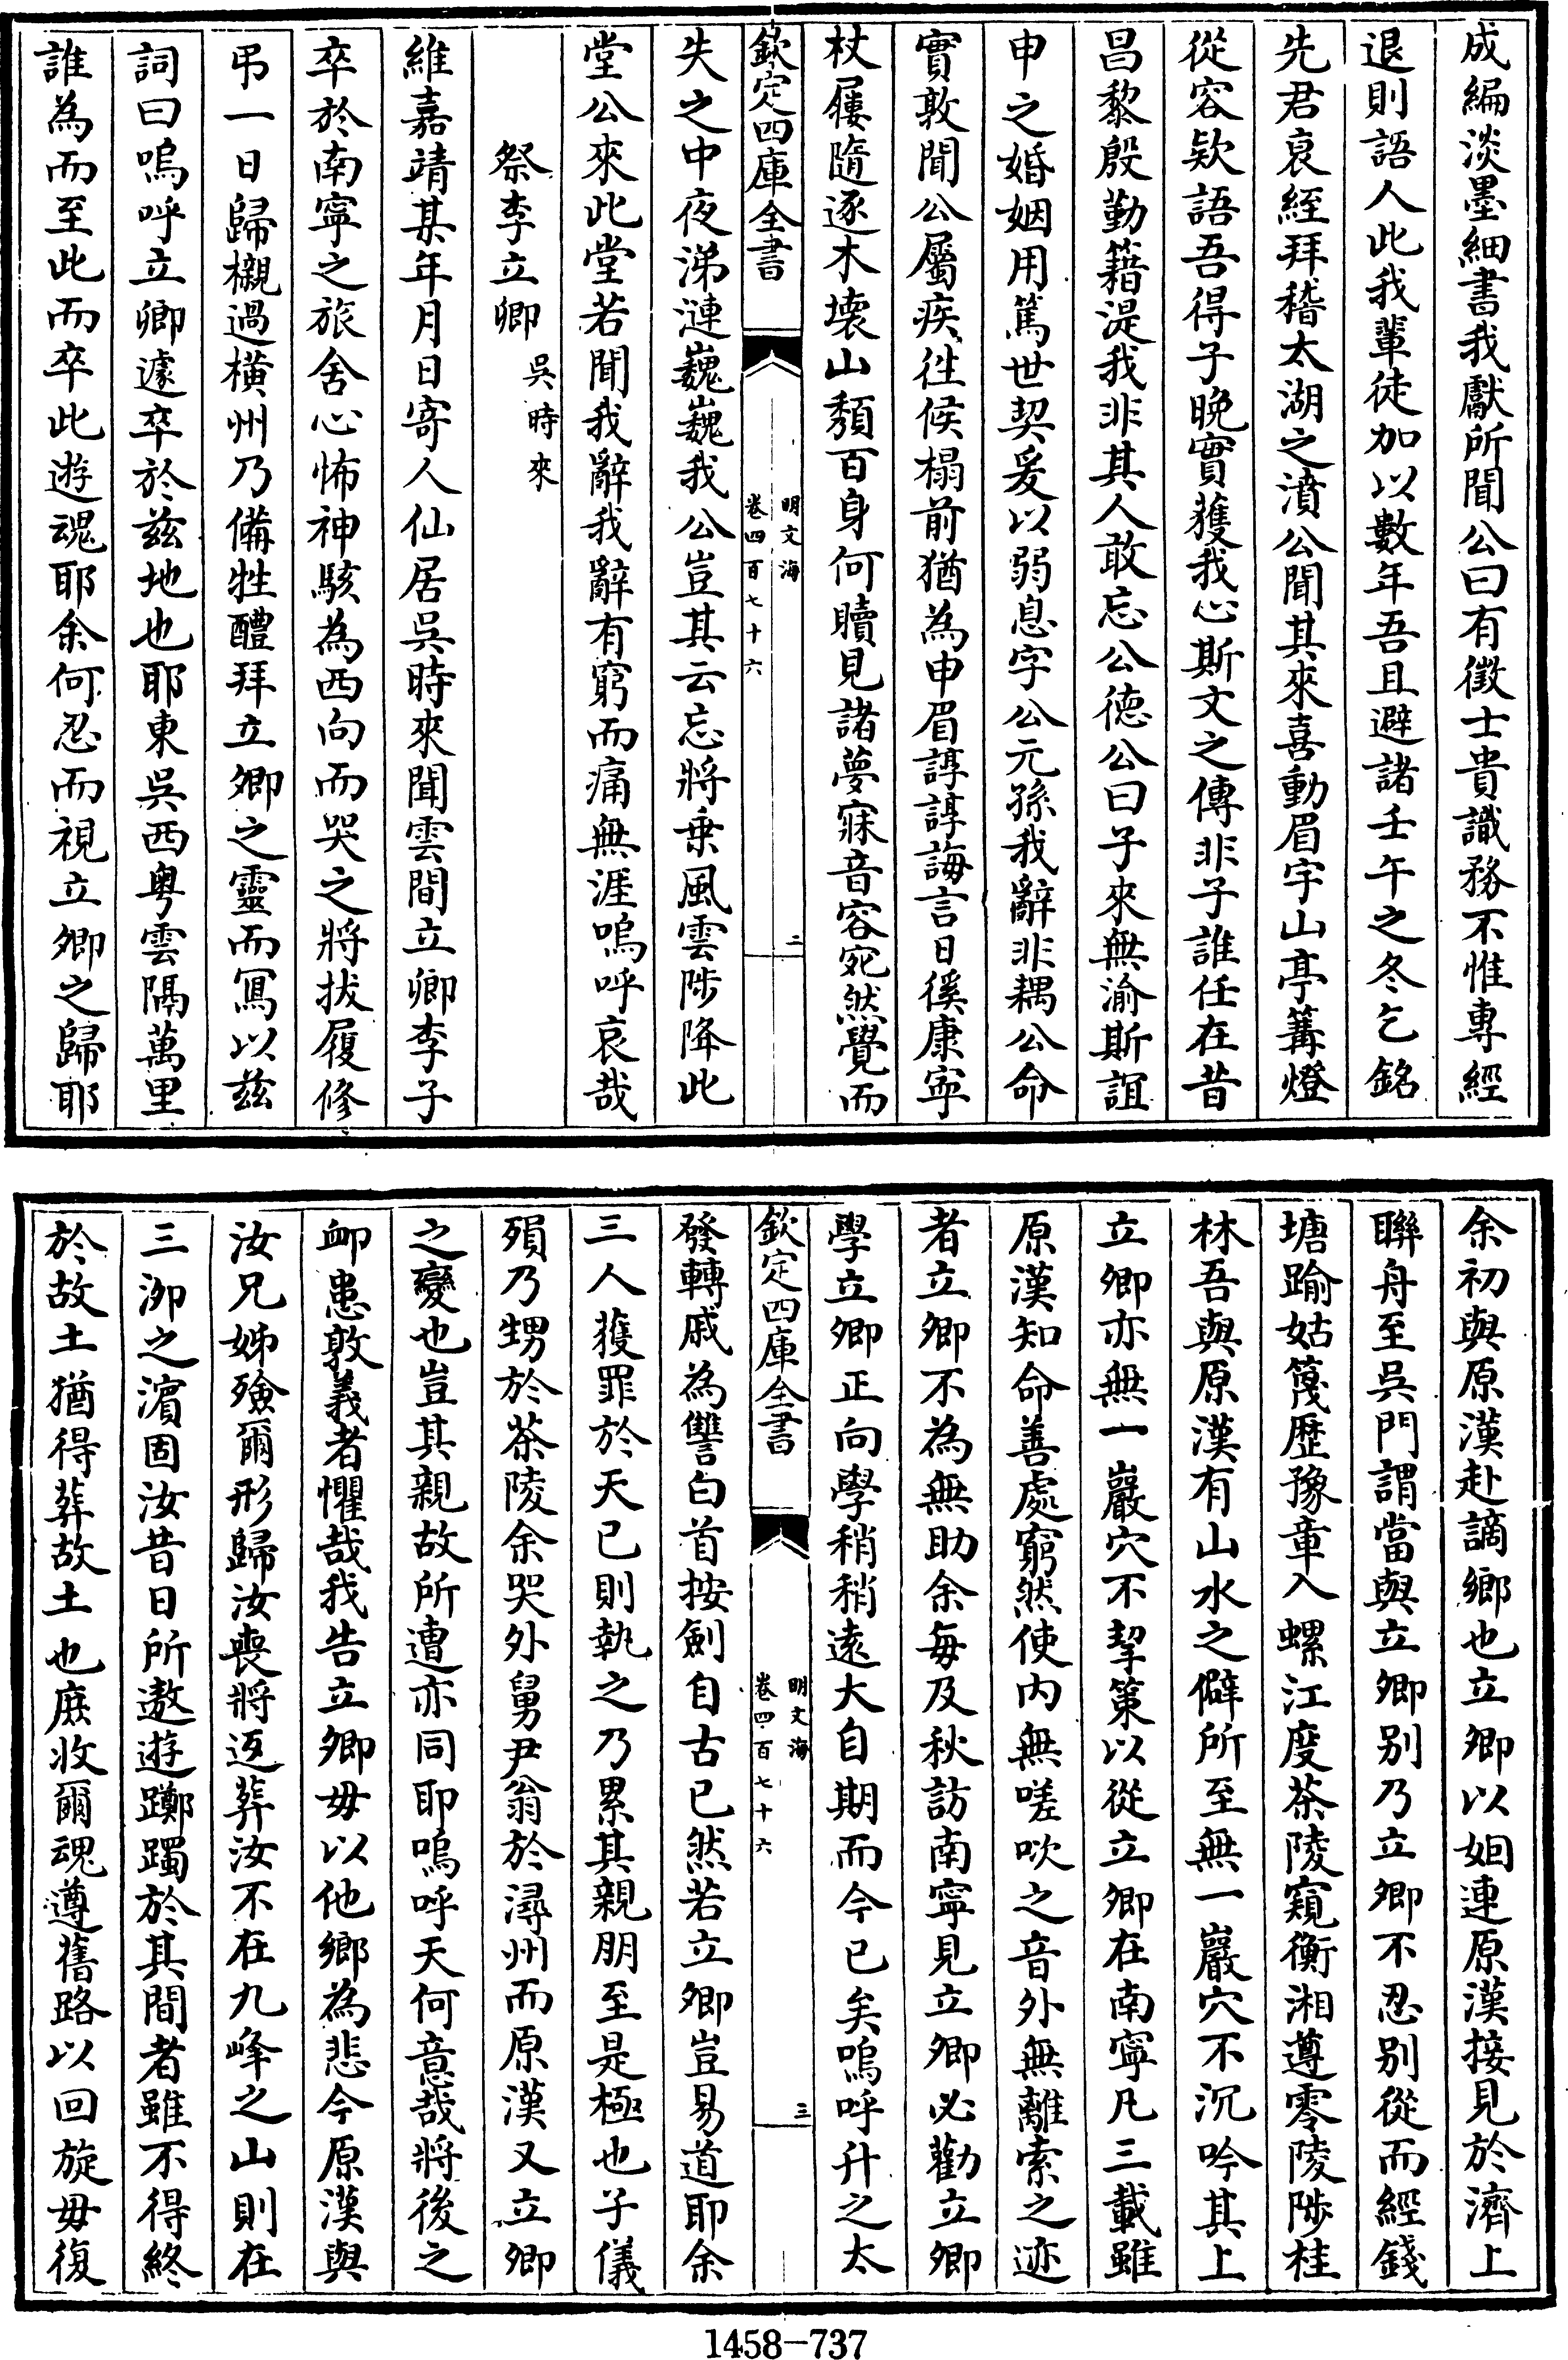 成編淡墨細書我獻所聞公曰有徴士貴識務不惟專經
退則語人此我輩徒加以數年吾且避諸壬午之冬乞銘
先君哀絰拜稽太湖之濆公聞其來喜動眉宇山亭篝燈
從容欵語吾得子晚實獲我心斯文之傳非子誰任在昔
昌黎殷勤籍湜我非其人敢忘公徳公曰子來無渝斯誼
申之婚姻用篤世契爰以弱息字公元孫我辭非耦公命
實敦聞公屬疾徃候榻前猶為申眉諄諄誨言日徯康寜
杖屨隨逐木壊山頽百身何贖見諸夢寐音容宛然覺而
欽定四庫全書
明文海
卷四百七十六
二
失之中夜涕漣巍巍我公豈其云忘將乗風雲陟降此
堂公來此堂若聞我辭我辭有窮而痛無涯嗚呼哀哉
祭李立卿 吳時來
維嘉靖某年月日寄人仙居吳時來聞雲間立卿李子
卒於南寧之旅舍心怖神駭為西向而哭之將拔履修
弔一日歸櫬過橫州乃備牲醴拜立卿之靈而冩以兹
詞曰嗚呼立卿遽卒於兹地也耶東吳西粤雲隔萬里
誰為而至此而卒此遊魂耶余何忍而視立卿之歸耶
余初與原漢赴謫鄉也立卿以姻連原漢接見於濟上
聯舟至吳門謂當與立卿别乃立卿不忍别從而經錢
塘踰姑篾歴豫章入螺江度茶陵窺衡湘遵零陵陟桂
林吾與原漢有山水之僻所至無一巖穴不沉吟其上
立卿亦無一巖穴不挈策以從立卿在南寧凡三載雖
原漢知命善處窮然使内無嗟吹之音外無離索之迹
者立卿不為無助余毎及秋訪南寧見立卿必勸立卿
學立卿正向學稍稍逺大自期而今已矣嗚呼升之太
欽定四庫全書
明文海
卷四百七十六
三
發轉戚為讐白首按劍自古已然若立卿豈易道耶余
三人獲罪於天已則執之乃累其親朋至是極也子儀
殞乃甥於茶陵余哭外舅尹翁於潯州而原漢又立卿
之變也豈其親故所遭亦同耶嗚呼天何意哉將後之
卹患敦義者懼哉我告立卿毋以他鄉為悲今原漢與
汝兄姊殮爾形歸汝喪將返葬汝不在九峰之山則在
三泖之濵固汝昔日所遨遊躑躅於其間者雖不得終
於故土猶得葬故土也庶收爾魂遵舊路以回旋毋復
1458-737